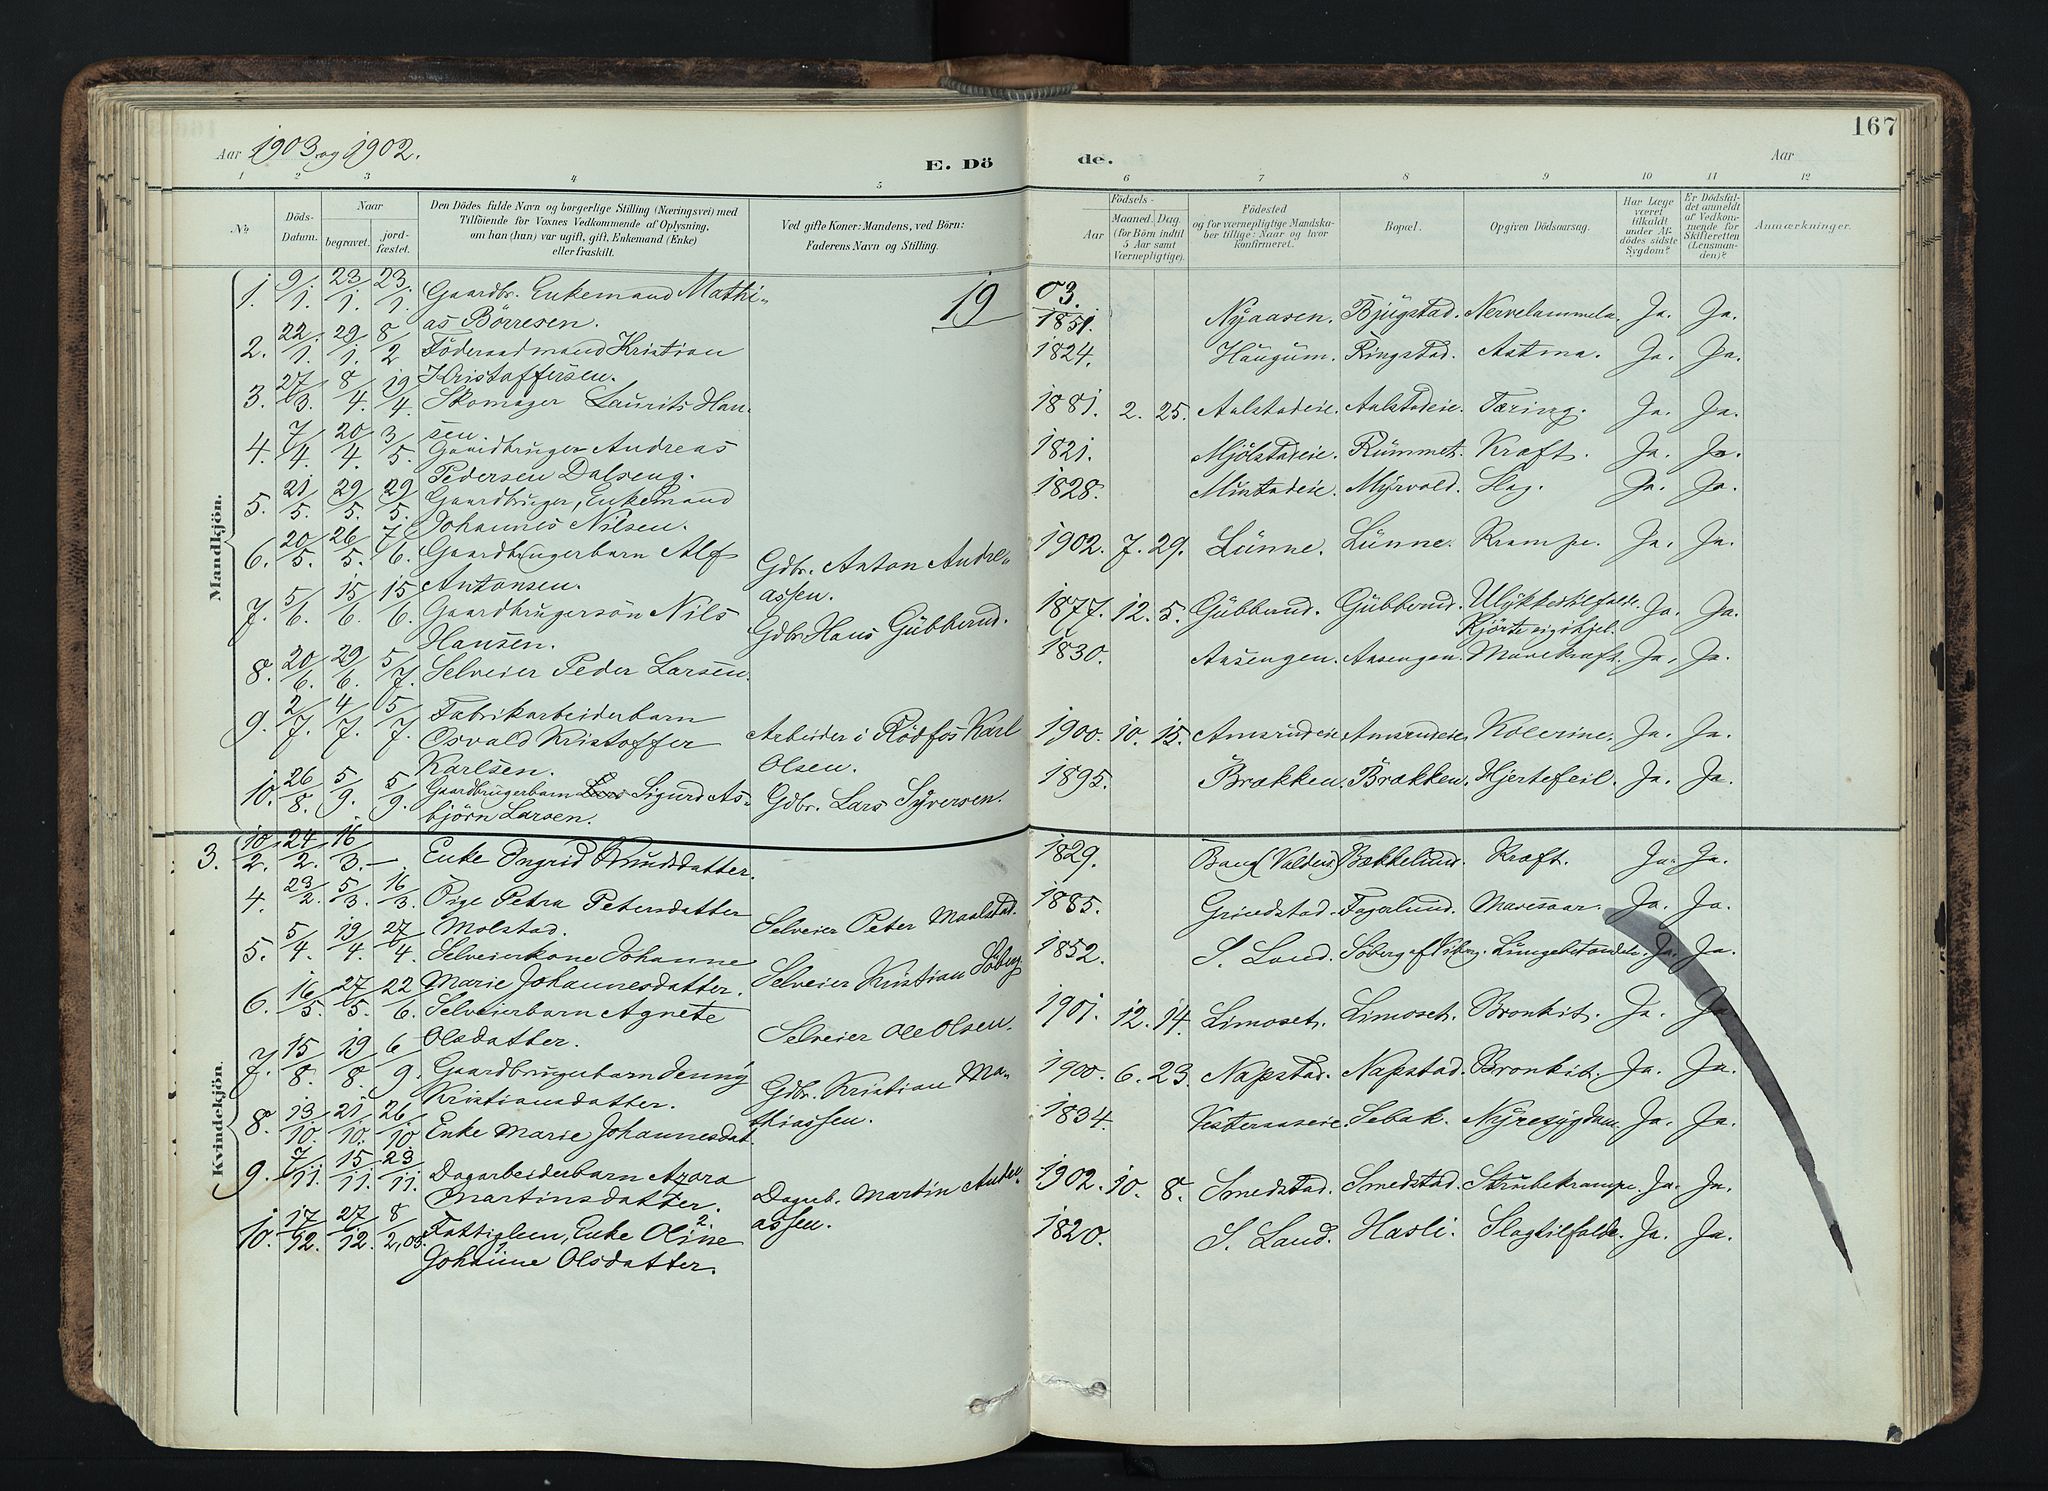 167
Aar 1903 og 1902.
E. Dö
de.
Aar
1 2 3 4 5 6 7 8 9 10 11 12
No.
Döds-Datum.
Naar
begravet.
jord-fæstet.
Den Dödes fulde Navn og borgerlige Stilling (Næringsvei) med
Tilföiende for Voxnes Vedkommende af Oplysning,
om han (hun) var ugift, gift, Enkemand (Enke)
eller fraskilt.
Ved gifte Koner: Mandens, ved Börn:
Faderens Navn og Stilling.
Födsels-
Aar
Maaned. Dag.
(for Börn indtil
5 Aar samt
Værnepligtige).
Födested
og for værnepligtige Mandska-
ber tillige: Naar og hvor
konfirmeret.
Bopæl.
Opgiven Dödsaarsag.
Har Læge
været
tilkaldt
under Af-
dödes sidste
Sygdom?
Er Dödsfal-
det anmeldt
af Vedkom-
mende for
Skifteretten
(Lensman-
den)?
Anmærkninger.
Mandkjön.
19 03.
1. 9/1. 23/1. 23/1. Gaardbr. Enkemand Mathi-
as Börresen. 1851. Nyaasen. Bjugstad. Nervelammelse. Ja. Ja.
2. 22/1. 29/1. 8/2 Föderaadmand Kristian
Kristoffersen. 1824. Haugum. Ringstad. Astma. Ja. Ja.
3. 27/3. 8/4. 19/4. Skomager Laurits Han-
sen. 1881. 2. 25. Aalstadeie. Aalstadeie. Tæring. Ja. Ja.
4. 7/4. 20/4. 3/5. Gaardbruger Andreas
Pedersen Dalseng. 1821. Mjölstadeie. Rummet. Kræft. Ja. Ja.
5. 21/5. 29/5. 29/5. Gaardbruger, Enkemand
Johannes Nilsen. 1828. Mustadeie. Myrvold. Slag. Ja. Ja.
6. 20/5. 26/5. 7/6. Gaardbrugerbarn Alf
Antonsen. Gdbr. Anton Andre-
assen. 1902. 7. 29. Lunne. Lunne. Krampe. Ja. Ja.
7. 5/6. 15/6. 15/6. Gaardbrugersön Nils
Hansen. Gdbr. Hans Gubberud. 1877. 12. 5. Gubberud. Gubberud. Ulykkestilfælde.
Kjörte sig ihjel. Ja. Ja.
8. 20/6. 29/6. 5/7. Selveier Peder Larsen. 1830. Aasengen. Aasengen. Mavekræft. Ja. Ja.
9. 2/7. 4/7. 5/7. Fabrikarbeiderbarn
Osvald Kristoffer
Karlsen. Arbeider i Rödfos Karl
Olsen. 1900. 10. 15. Amsrudeie Amsrudeie. Kolerine. Ja. Ja.
10. 26/8. 5/9. 5/9. Gaardbrugerbarn Lars Sigurd As-
björn Larsen. Gdbr. Lars Syversen. 1895. Brækken. Brækken. Hjertefeil. Ja. Ja.
Kvindekjön.
3. 10/2. 24/2. 16/3. — Enke Ingrid Knudsdatter. 1829. Bang (Valders) Bækkelund. Kræft. Ja. Ja.
4. 23/2. 5/3. 16/3. Pige Petra Petersdatter
Molstad. Selveier Peter Maalstad. 1885. Grindstad. Fagerlund. Mavesaar. Ja. Ja.
5. 5/4. 19/4. 27/4. Selveierkone Johanne
Marie Johannesdatter. Selveier Kristian Söberg 1852. S. Land. Söberg af Lungebetændelse. Ja. Ja.
6. 16/5. 27/5. 22/6. Selveierbarn Agnete
Olsdatter. Selveier Ole Olsen. 1901. 12. 14. Limoset. Limoset. Bronkit. Ja. Ja
7. 15/8. 19/8. 6/9. Gaardbrugerbarn Jenny
Kristiansdatter. Gdbr. Kristian Ma-
thiassen. 1900. 6. 23. Napstad. Napstad. Bronkit. Ja. Ja.
8. 13/10. 21/10. 26/10. Enke Marie Johannesdat. 1834. Vesteraaseie. Sebak. Nyresygdom. Ja. Ja.
9. 7/11. 15/11. 23/11. Dagarbeiderbarn Azora
Martinsdatter. Dagarb. Martin Andre-
assen. 1902. 10. 8. Smedstad. Smedstad. Strubekrampe. Ja. Ja.
10. 17/12. 27/12. 8/2,05. Fattiglem, Enke Oline
Johanne Olsdatter. 1820. S. Land. Hasli. Slagtilfælde. Ja. Ja.